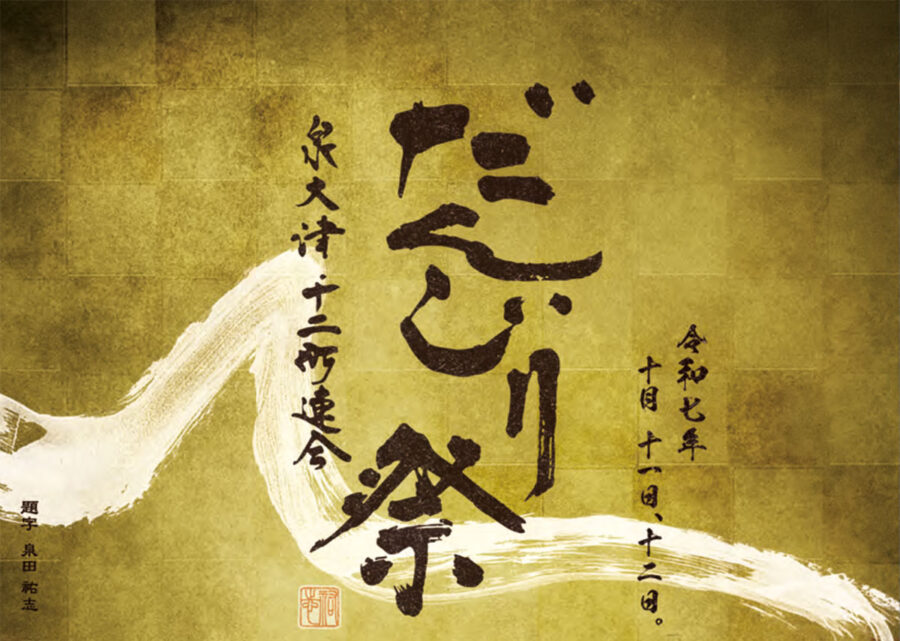 令和七年
十月 十一日、十二日。
だんじり祭
泉大津・十二町連合
題字 泉田 祐志